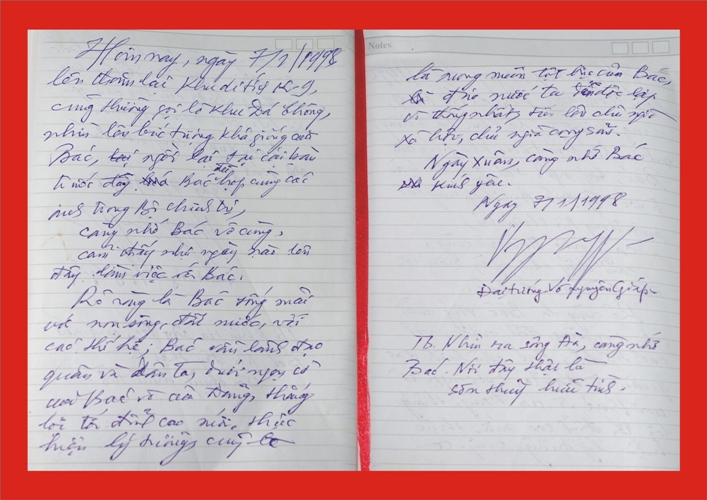 Hôm nay, ngày 7/1/1998
lên thăm lại Khu di tích K-9,
cũng thường gọi là Khu Đá Chông,
nhìn lên bức tượng khá giống của
Bác, ngồi lại tại cái bàn
trước đây Bác đã họp cùng các
anh trong Bộ Chính trị,
càng nhớ Bác vô cùng,
cảm thấy như ngày nào lên
đây làm việc với Bác.
Rõ ràng là Bác sống mãi
với non sông, đất nước, với
các thế hệ; Bác vẫn lãnh đạo
quân và dân ta, dưới ngọn cờ
của Bác và của Đảng, thắng
lợi tới đỉnh cao nữa, thực
hiện lý tưởng cũng
Notes
là mong muốn tột bực của Bác,
đưa nước ta độc lập
và thống nhất, tiến lên chủ nghĩa
xã hội, chủ nghĩa cộng sản.
Ngày Xuân, càng nhớ Bác
kính yêu.
Ngày 7/1/1998
Đại tướng Võ Nguyên Giáp
Tb. Nhìn ra sông Đà, càng nhớ
Bác. Nơi đây thật là
sơn thuỷ hữu tình.